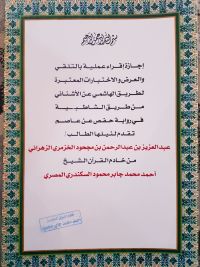 بسم الله الرحمن الرحيم
إجازة إقراء عملية بالتلقي
والعرض والاختبارات المعتبرة
لطريق الهاشمي عن الأشناني
من طريق الشاطبية
في رواية حفص عن عاصم
تقدم لنيلها الطالب/
عبدالعزيز بن عبدالرحمن بن مجحود الخزمري الزهراني
من خادم القرآن الشيخ
أحمد محمد جابر محمود السكندري المصري